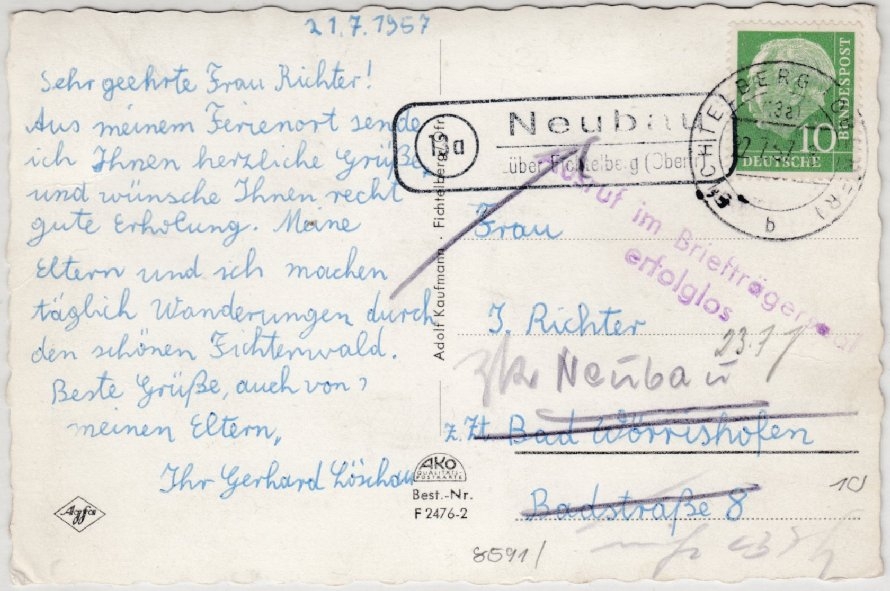 21.7.1957
Sehr geehrte Frau Richter!
Aus meinem Ferienort sende
ich Ihnen herzliche Grüße
und wünsche Ihnen recht
gute Erholung. Meine
Eltern und ich machen
täglich Wanderungen durch
den schönen Fichtenwald.
Beste Grüße, auch von
meinen Eltern,
Ihr Gerhard Löschau
Agfa
Adolf Kaufmann · Fichtelberg/Ofr.
AKO
QUALITÄTS-
POSTKARTE
Best.-Nr.
F 2476-2
8591/
13a
Neubau
über Fichtelberg (Oberfr)
FICHTELBERG
b
10
DEUTSCHE
BUNDESPOST
Ausruf im Briefträgersaal
erfolglos
Frau
I. Richter
23.7
zk Neubau
z. Zt. Bad Wörrishofen
Badstraße 8
10